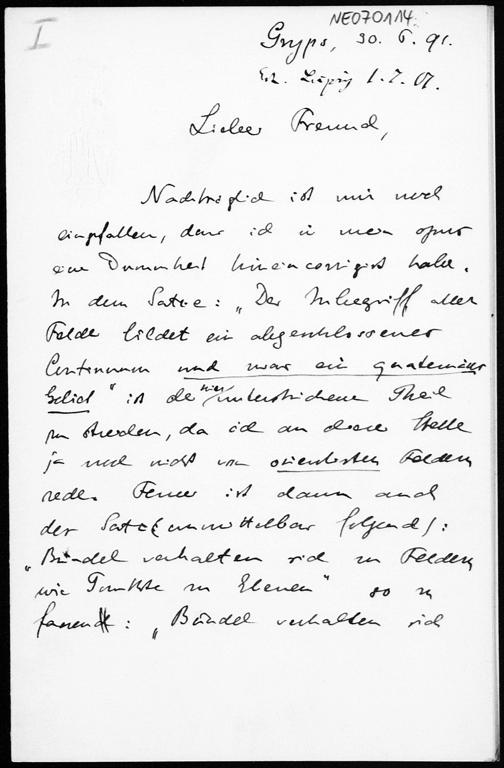 NE070114
I
Gryps, 30. 6. 91.
Erh. Leipzig 1. 7. 01.
Lieber Freund,
Nachträglich ist mir noch
eingefallen, dass ich in mein opus
eine Dummheit hineincorrigirt habe.
In dem Satze: „Der Inbegriff aller
Felder bildet ein abgeschlossenes
Continuum und zwar ein quaternäres
Gebiet" ist der hier unterstrichene Theil
zu streichen, da ich an dieser Stelle
ja noch nicht von orientirten Feldern
rede. Ferner ist dann auch
der Satz (unmittelbar folgend):
„Bündel verhalten sich zu Feldern
wie Punkte zu Ebenen" so zu
fassen: „Bündel verhalten sich